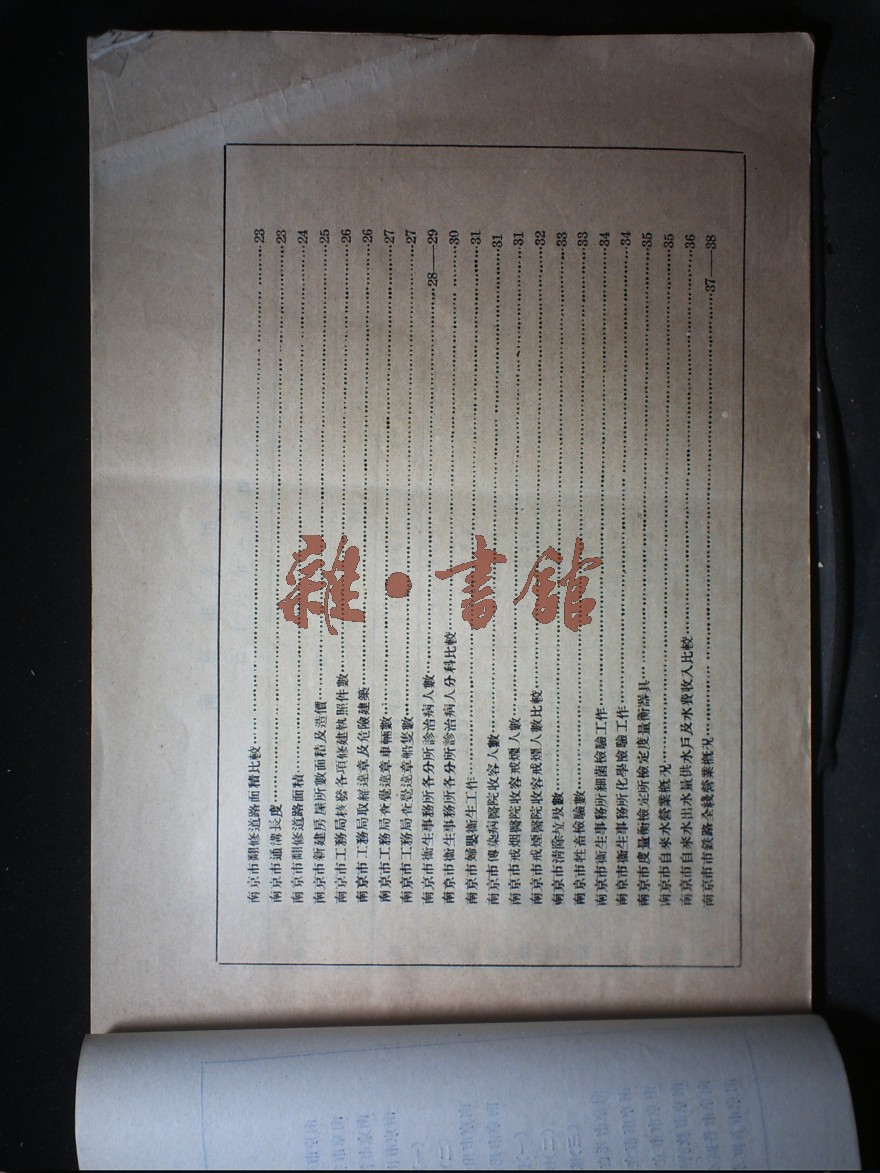 南京市翻修道路面積比較……23
南京市通溝長度……23
南京市翻修道路面積……24
南京市新建房屋所數面積及造價……25
南京市工務局核發各項修建執照件數……26
南京市工務局取締違章及危險建築……26
南京市工務局查覺違章車輛數……27
南京市工務局查覺違章船隻數……27
南京市衞生事務所各分所診治病人數……28——29
南京市衞生事務所各分所診治病人分科比較……30
南京市婦嬰衞生工作……31
南京市傳染病醫院收容人數……31
南京市戒烟醫院收容戒烟人數……31
南京市戒煙醫院收容戒煙人數比較……32
南京市清除垃圾數……33
南京市牲畜檢驗數……33
南京市衞生事務所細菌檢驗工作……34
南京市衞生事務所化學檢驗工作……34
南京市度量衡檢定所檢定度量衡器具……35
南京市自來水營業概况……35
南京市自來水出水量供水戶及水費收入比較……36
南京市市鉄路全綫營業概况……37——38
雜·書館